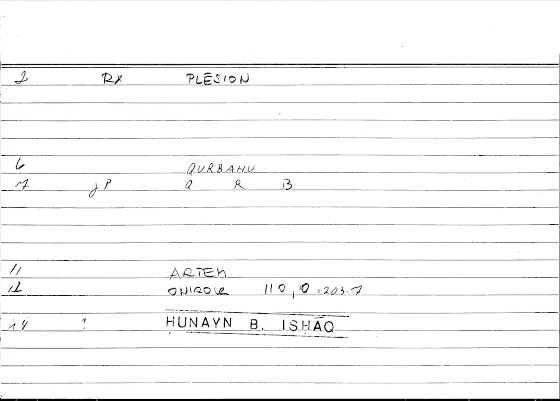 2 RX PLESION
6 QURBANU
7 JP Q R B
11 ARTEM
12 ONIROCR 110,10 = 203.7
14 ? HUNAYN B. ISHAQ